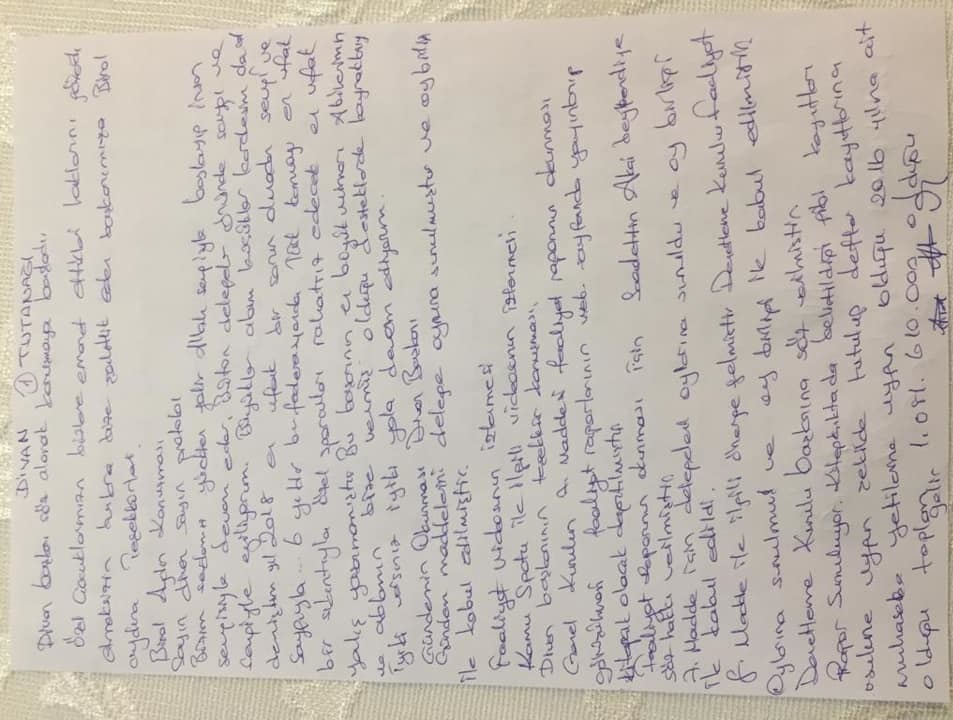 DİVAN ① TUTANAĞI
Divan başkanı söz alarak konuşmaya başladı.
Özel Çocuklarımızın bizlere emanet ettikleri haklarını
bize yardım eden başkanımıza Birol
Aydına Teşekkürler.
Birol Aydın Konuşması
Sayın divan sayın protokol
Bizim seçilmiş yöneten gelir Allah sevgiyle başlayıp insan
sevgisiyle devam eder. Bütün delegeler önünde saygı ve
Sevgiyle eğiliyorum. Büyükler abim küçükler kardeşim dedi
demiştim yıl 2015 en ufak bir sorun duadan sevgi ve
Saygıyla... 6 yıldır bu federasyonda TEK kuruşu en ufak
bir sıkıntıyla özel sporcuları rahatsız edecek en ufak
yanlış yapmamıştır Bu başarının en büyük mimarı Abilerimin
ve ablamın bize vermiş olduğu desteklerde kaynaklanıyor
iyiki varsınız iyiki yola devam ediyorum.
Gündemin Okunması Divan Başkanı
Gündem maddelerini delege oyuna sunulmuştur ve oybirliği
ile kabul edilmiştir.
Faaliyet videosunun izlenmesi
Kamu Spotu ile ilgili videonun izlenmesi.
Divan başkanının teşekkür konuşması.
Genel Kurulun 6. Maddesi faaliyet raporunun okunması
görüşülmesi faaliyet raporlarının web sayfasında yayınlanıp
Kitapçık olarak dağıtılmıştır
faaliyet raporunun okunması için Sadettin Akai beyefendiye
söz hakkı verilmiştir.
7. Madde için delegelerin oylarına sunuldu ve oy birliği
ile kabul edildi.
8. Madde ile ilgili önerge gelmiştir Denetleme Kurulu faaliyet
Oylarına sunulmuş ve oy birliği ile kabul edilmiştir.
Denetleme Kurulu başkanına söz verilmiştir
Rapor Sunuluyor. Kitapçıktada belirtildiği gibi kayıtları
usulüne uygun şekilde tutulup defter kayıtlarına
muhasebe yetkilerine uygun olduğu 2016 yılına ait
olduğu toplam gelir 1.081.610.00 olduğu